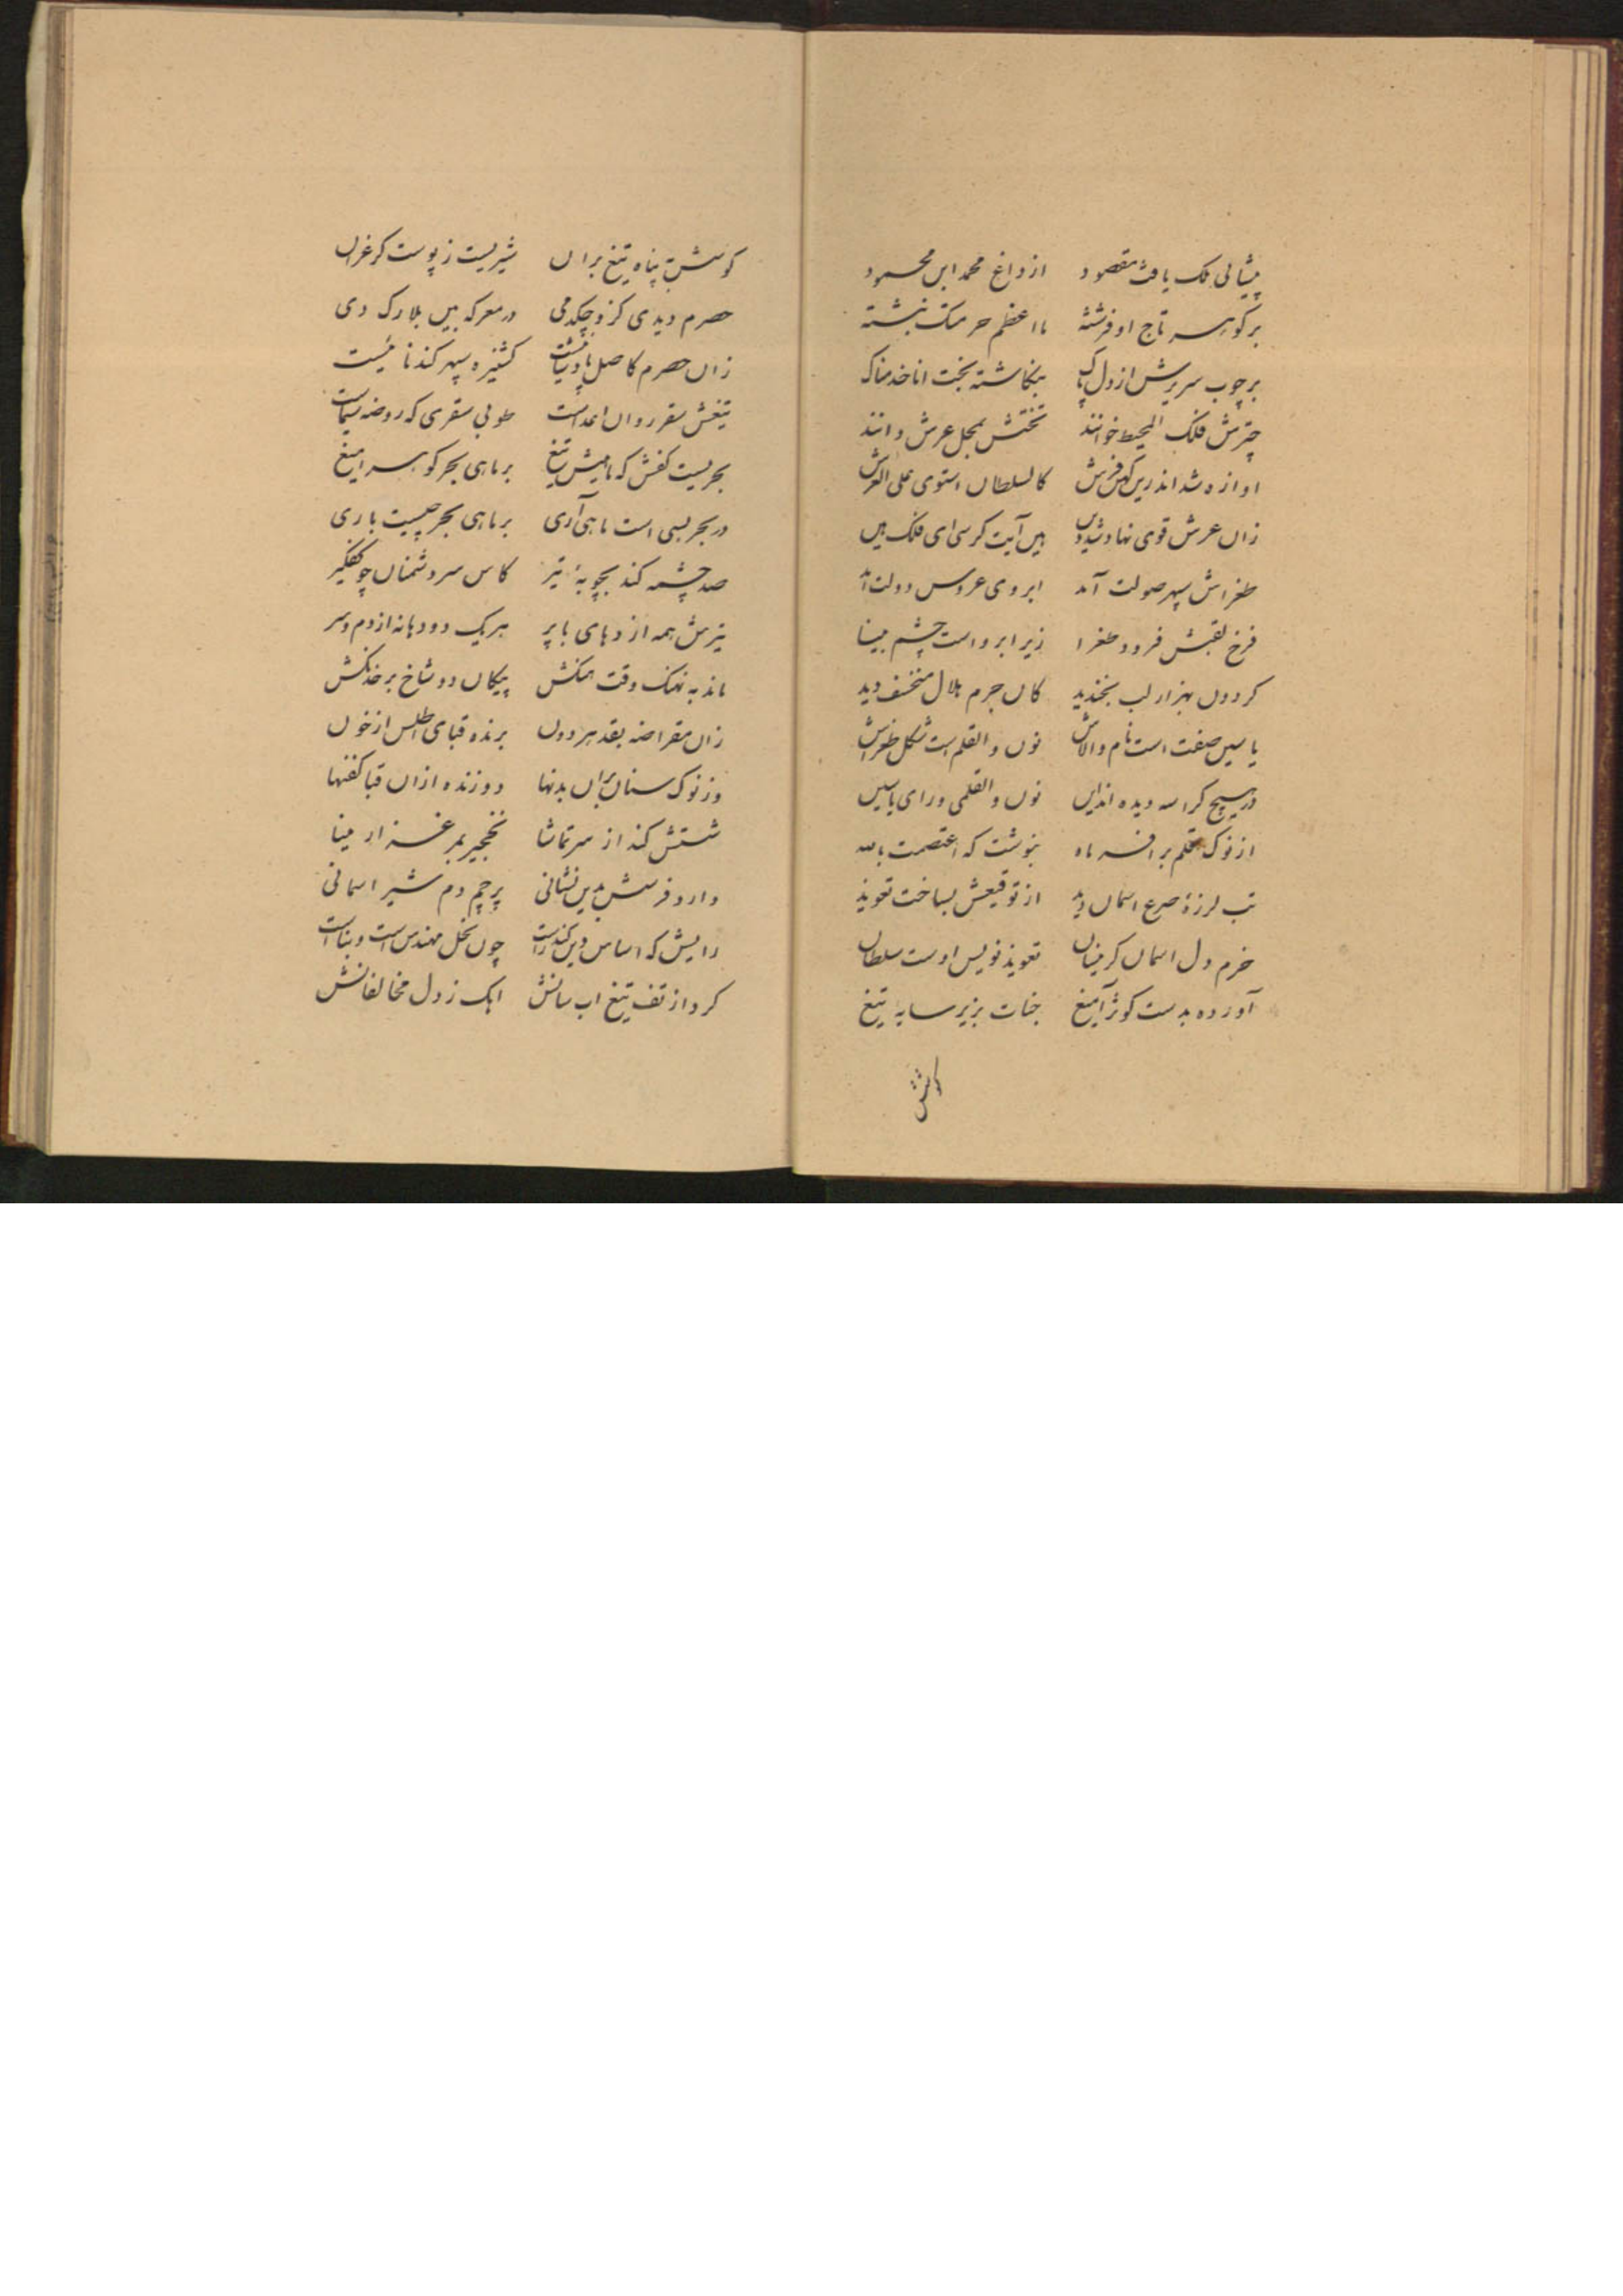 پیشانی ملک یافت مقصود از داغ محمد ابن محمود
بر گوهر تاج او فرشته ما اعظم حرمتک نبشته
بر چوب سریرش از دل پاک بنگاشته بخت انا خدمناک
چترش فلک المحیط خوانند تختش بمحل عرش دانند
اوازه شد اندرین کهن فرش کالسلطان استوی علی العرش
زان عرش قوی نهاد شد دین هین آیت کرسی ای فلک هین
طغراش سپهر صولت آمد ابروی عروس دولت آمد
فرخ لقبش فرود طغرا زیر ابرو است چشم بینا
کردون بهزار لب بخندید کان جرم هلال منخسف دید
یاسین صفت است نام والاش نون والقلم است شکل طغراش
در هیچ کراسه دیده اند این نون والقلمی ورای یاسین
از نوک قلم بر افسر ماه بنوشت که اعتصمت بالله
تب لرزهٔ صرع اسمان دید از توقیعش بساخت تعویذ
خرم دل اسمان کز مینان تعویذ نویس اوست سلطان
آورده بدست کوثر آمیغ جنات بزیر سایهٔ تیغ
کوسش
کوسش بپناه تیغ بران شیریست ز پوست کرغران
حصرم دیدی کزو چکد می در معرکه بین بلارک وی
زان حصرم کاصل پادشائیست کشنیزه سپهر کندنائیست
تیغش سقر روان اعداست طوبی سقری که روضه سیماست
بحریست کفش که ماهیش تیغ بر ماهی بحر کوهر امیغ
در بحر بسی است ماهی آری بر ماهی بحر چیست باری
صد چشمه کند بچوبهٔ تیر کاس سر دشمنان چو کفکیر
تیرش همه اژدهای با پر هر یک دو دهانه از دم و سر
ماند به نهنک وقت جنکش پیکان دو شاخ بر خدنکش
زان مقراضه بقد هر دون برنده قبای اطلس از خون
وز نوک سنان بران بدنها دوزنده ازان قبا کفنها
شستش کند از سر تماشا نخجیر بمرغزار مینا
دارد فرسش بدین نشانی پرچم دم شیر اسمانی
رایش که اساس دین کند راست چون نحل مهندس است و بناست
کرد از تف تیغ اب سانش اهک ز دل مخالفانش